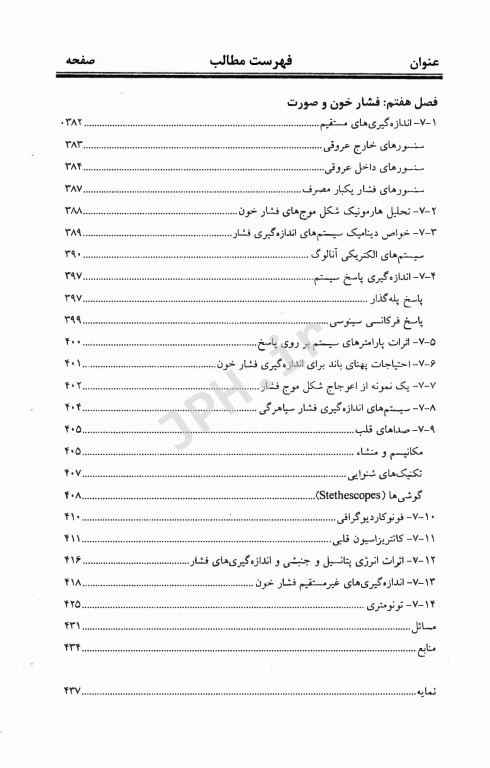 عنوان فهرست مطالب صفحه
فصل هفتم: فشار خون و صورت
۷-۱- اندازه‌گیری‌های مستقیم ۰۳۸۲
سنسورهای خارج عروقی ۳۸۳
سنسورهای داخل عروقی ۳۸۴
سنسورهای فشار یکبار مصرف ۳۸۷
۷-۲- تحلیل هارمونیک شکل موج‌های فشار خون ۳۸۸
۷-۳- خواص دینامیک سیستم‌های اندازه‌گیری فشار ۳۸۹
سیستم‌های الکتریکی آنالوگ ۳۹۰
۷-۴- اندازه‌گیری پاسخ سیستم ۳۹۷
پاسخ پله‌گذار ۳۹۷
پاسخ فرکانسی سینوسی ۳۹۹
۷-۵- اثرات پارامترهای سیستم بر روی پاسخ ۴۰۰
۷-۶- احتیاجات پهنای باند برای اندازه‌گیری فشار خون ۴۰۱
۷-۷- یک نمونه از اعوجاج شکل موج فشار ۴۰۲
۷-۸- سیستم‌های اندازه‌گیری فشار سیاهرگی ۴۰۴
۷-۹- صداهای قلب ۴۰۵
مکانیسم و منشاء ۴۰۵
تکنیک‌های شنوایی ۴۰۷
گوشی‌ها (Stethescopes) ۴۰۸
۷-۱۰- فونوکاردیوگرافی ۴۱۰
۷-۱۱- کاتتریزاسیون قلبی ۴۱۱
۷-۱۲- اثرات انرژی پتانسیل و جنبشی و اندازه‌گیری‌های فشار ۴۱۶
۷-۱۳- اندازه‌گیری‌های غیرمستقیم فشار خون ۴۱۸
۷-۱۴- تونومتری ۴۲۵
مسائل ۴۳۱
منابع ۴۳۴
نمایه ۴۳۷
JPH.ir